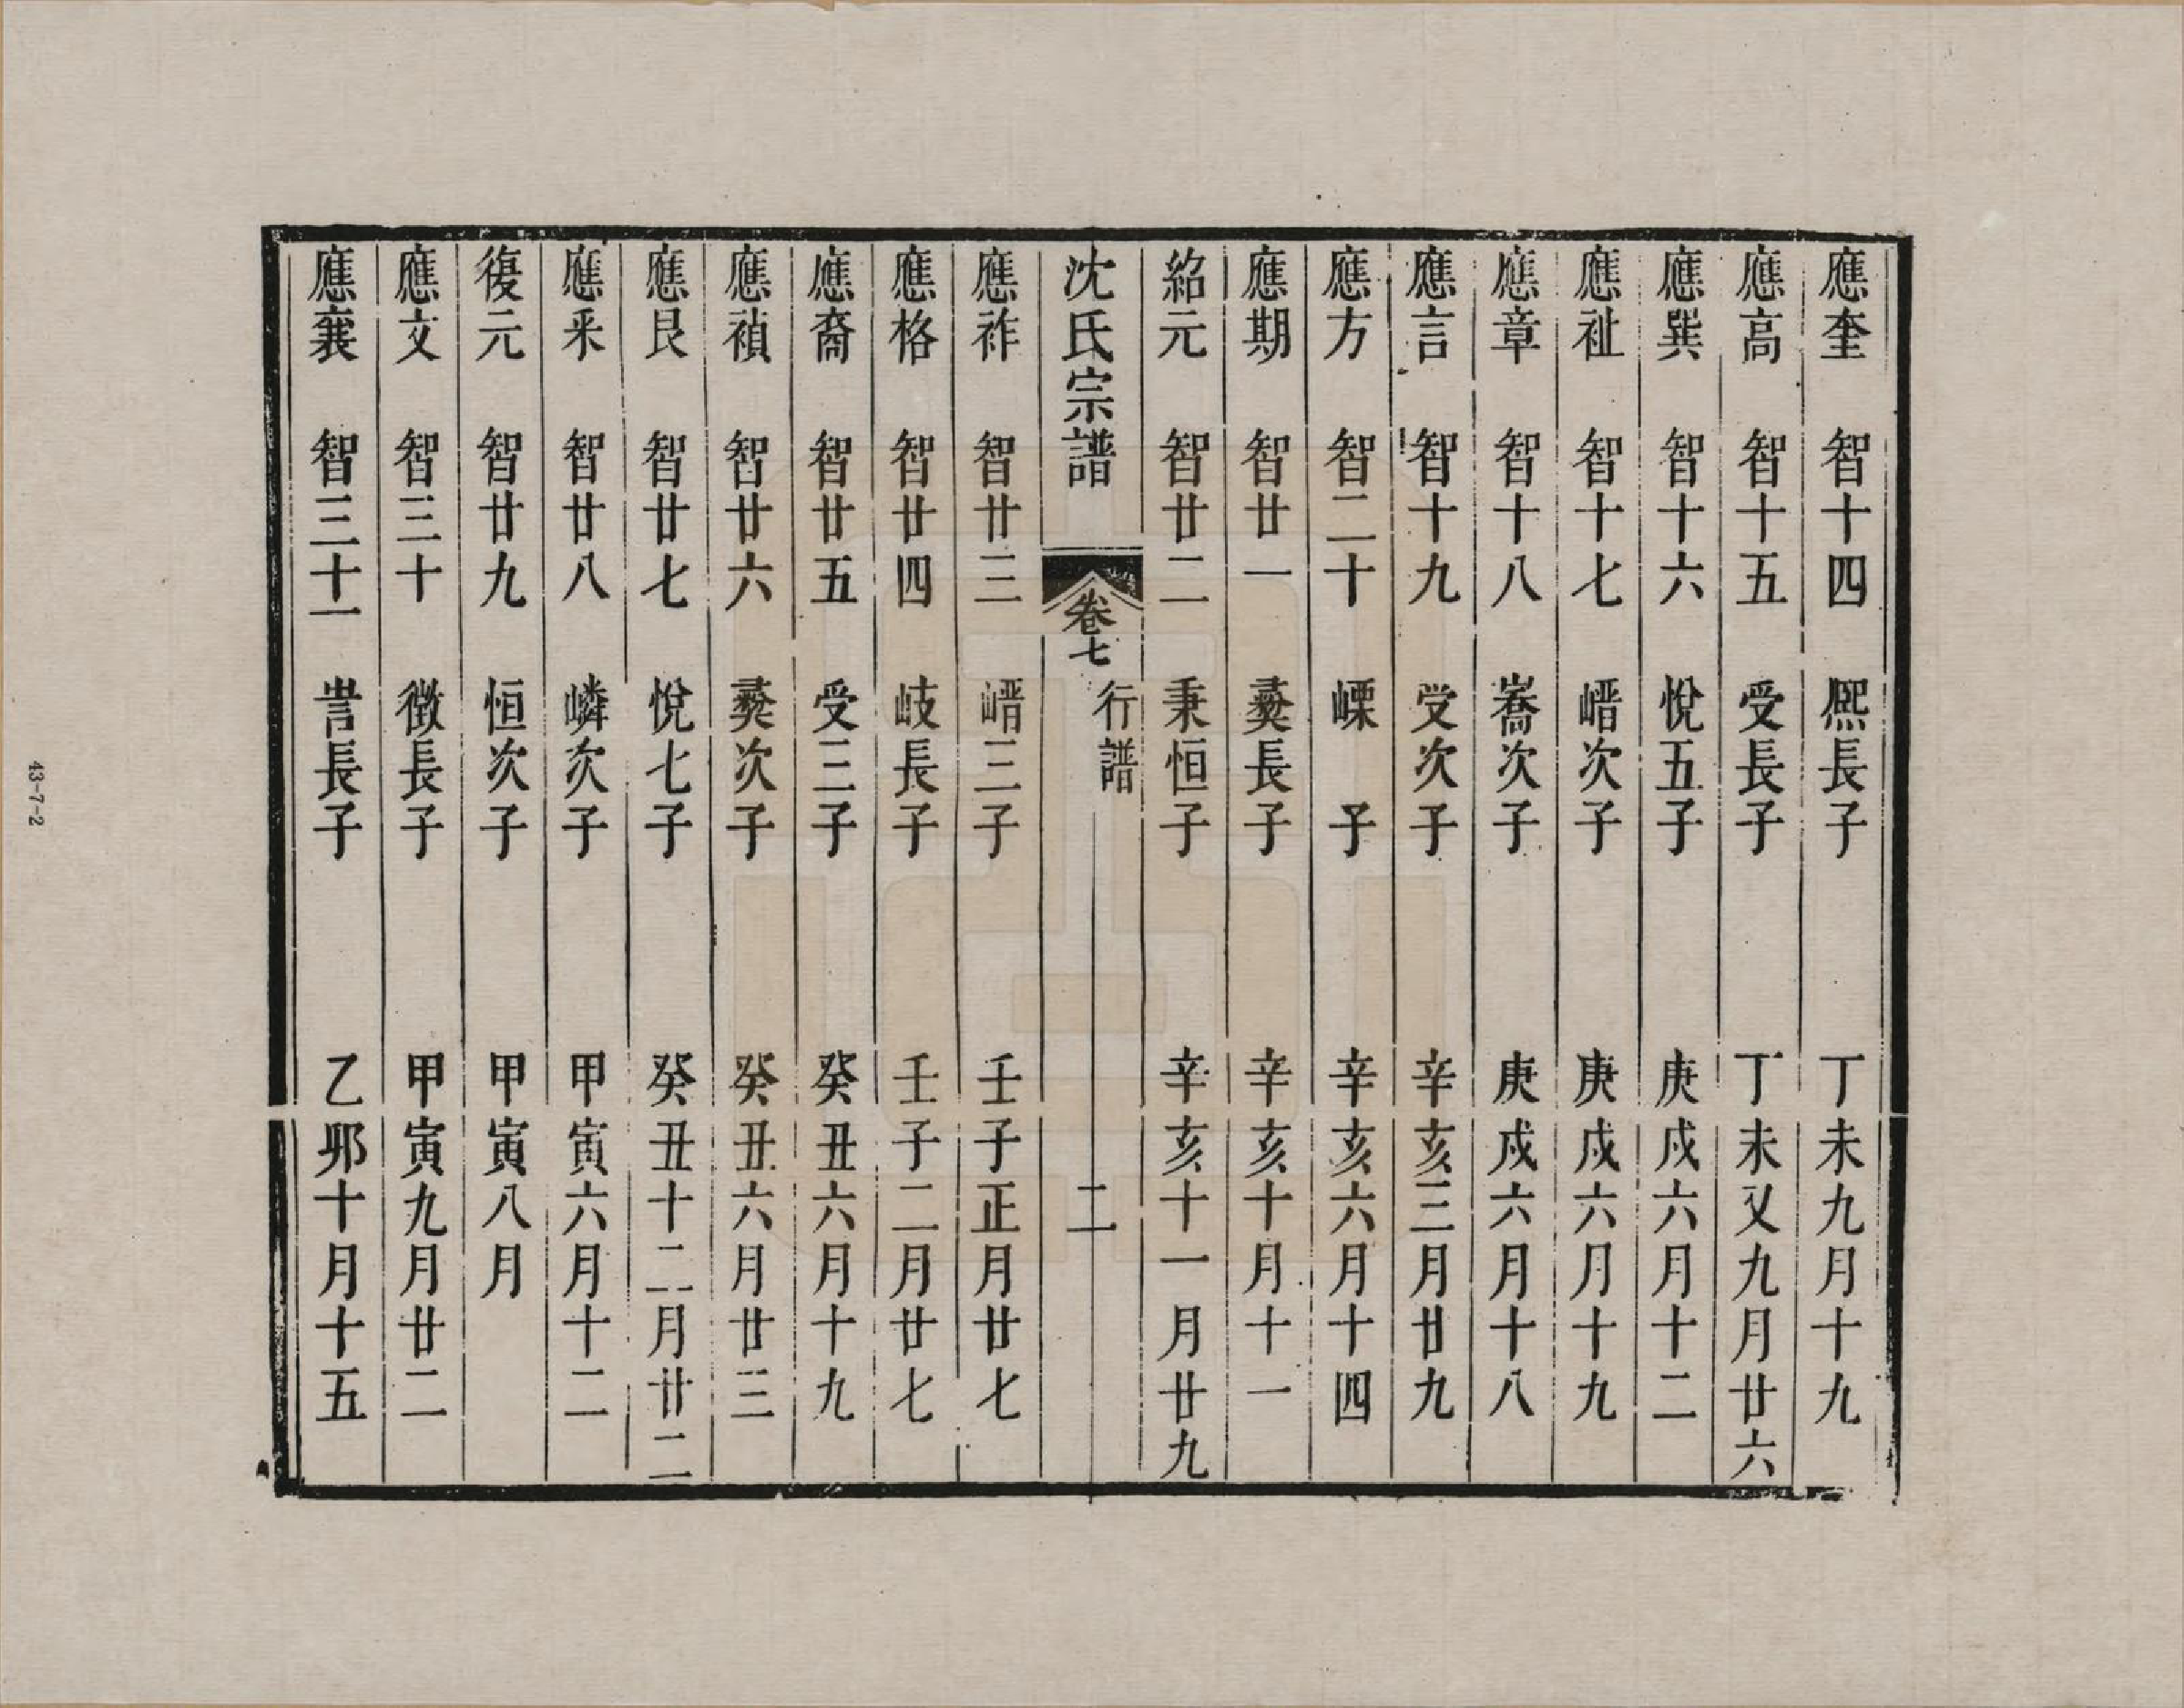 應奎 智十四 熈長子 丁未九月十九
應高 智十五 受長子 丁未又九月廿六
應巽 智十六 悅五子 庚戍六月十二
應祉 智十七 㟴次子 庚戍六月十九
應章 智十八 嵩次子 庚戍六月十八
應言 智十九 受次子 辛亥三月廿九
應方 智二十 㟳子 辛亥六月十四
應期 智廿一 彛長子 辛亥十月十一
紹元 智廿二 秉恒子 辛亥十一月廿九
沈氏宗譜 卷七 行譜 二
應祚 智廿三 㟴三子 壬子正月廿七
應格 智廿四 岐長子 壬子二月廿七
應裔 智廿五 受三子 癸丑六月十九
應禎 智廿六 彛次子 癸丑六月廿三
應艮 智廿七 悅七子 癸丑十二月廿二
應釆 智廿八 嶙次子 甲寅六月十二
復元 智廿九 恒次子 甲寅八月
應文 智三十 徵長子 甲寅九月廿二
應襄 智三十一 旹長子 乙夘十月十五
43-7-2